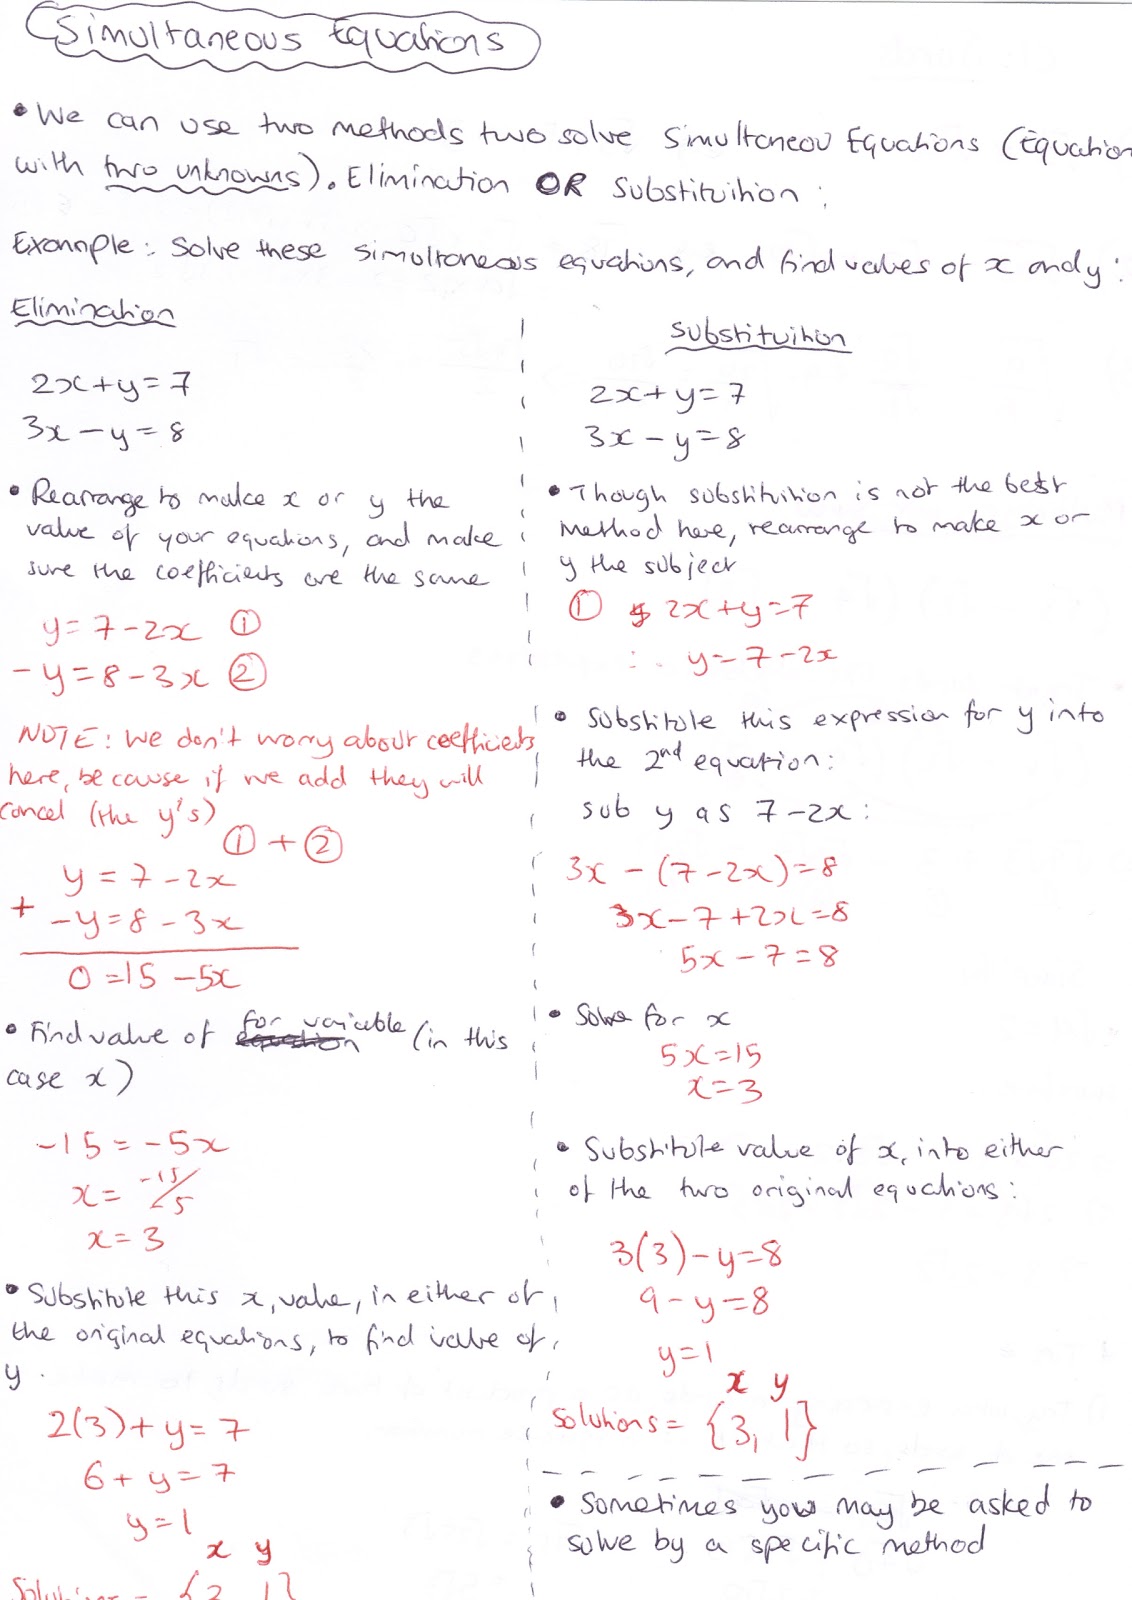 Simultaneous Equations
• We can use two methods two solve Simultaneou Equations (Equation
with two unknowns). Elimination OR Substituihion :
Example: Solve these simultaneous equations, and find values of x and y:
Elimination
2x+y=7
3x-y=8
• Rearrange to make x or y the
value of your equations, and make
sure the coefficients are the same
y=7-2x ①
-y=8-3x ②
NOTE: We don't worry about coefficients
here, because if we add they will
cancel (the y's)
①+②
y=7-2x
+ -y=8-3x
0=15-5x
• Find value of for variable (in this
case x)
-15=-5x
x=-15/-5
x=3
• Substitute this x, value, in either of
the original equations, to find value of
y.
2(3)+y=7
6+y=7
y=1
x y
Solutions = {3, 1}
Substituihion
2x+y=7
3x-y=8
• Though substituihion is not the best
method here, rearrange to make x or
y the subject
① 2x+y=7
∴ y=7-2x
• Substitute this expression for y into
the 2nd equation:
sub y as 7-2x:
3x-(7-2x)=8
3x-7+2x=8
5x-7=8
• Solve for x
5x=15
x=3
• Substitute value of x, into either
of the two original equations:
3(3)-y=8
9-y=8
y=1
x y
Solutions = {3, 1}
• Sometimes you may be asked to
solve by a specific method